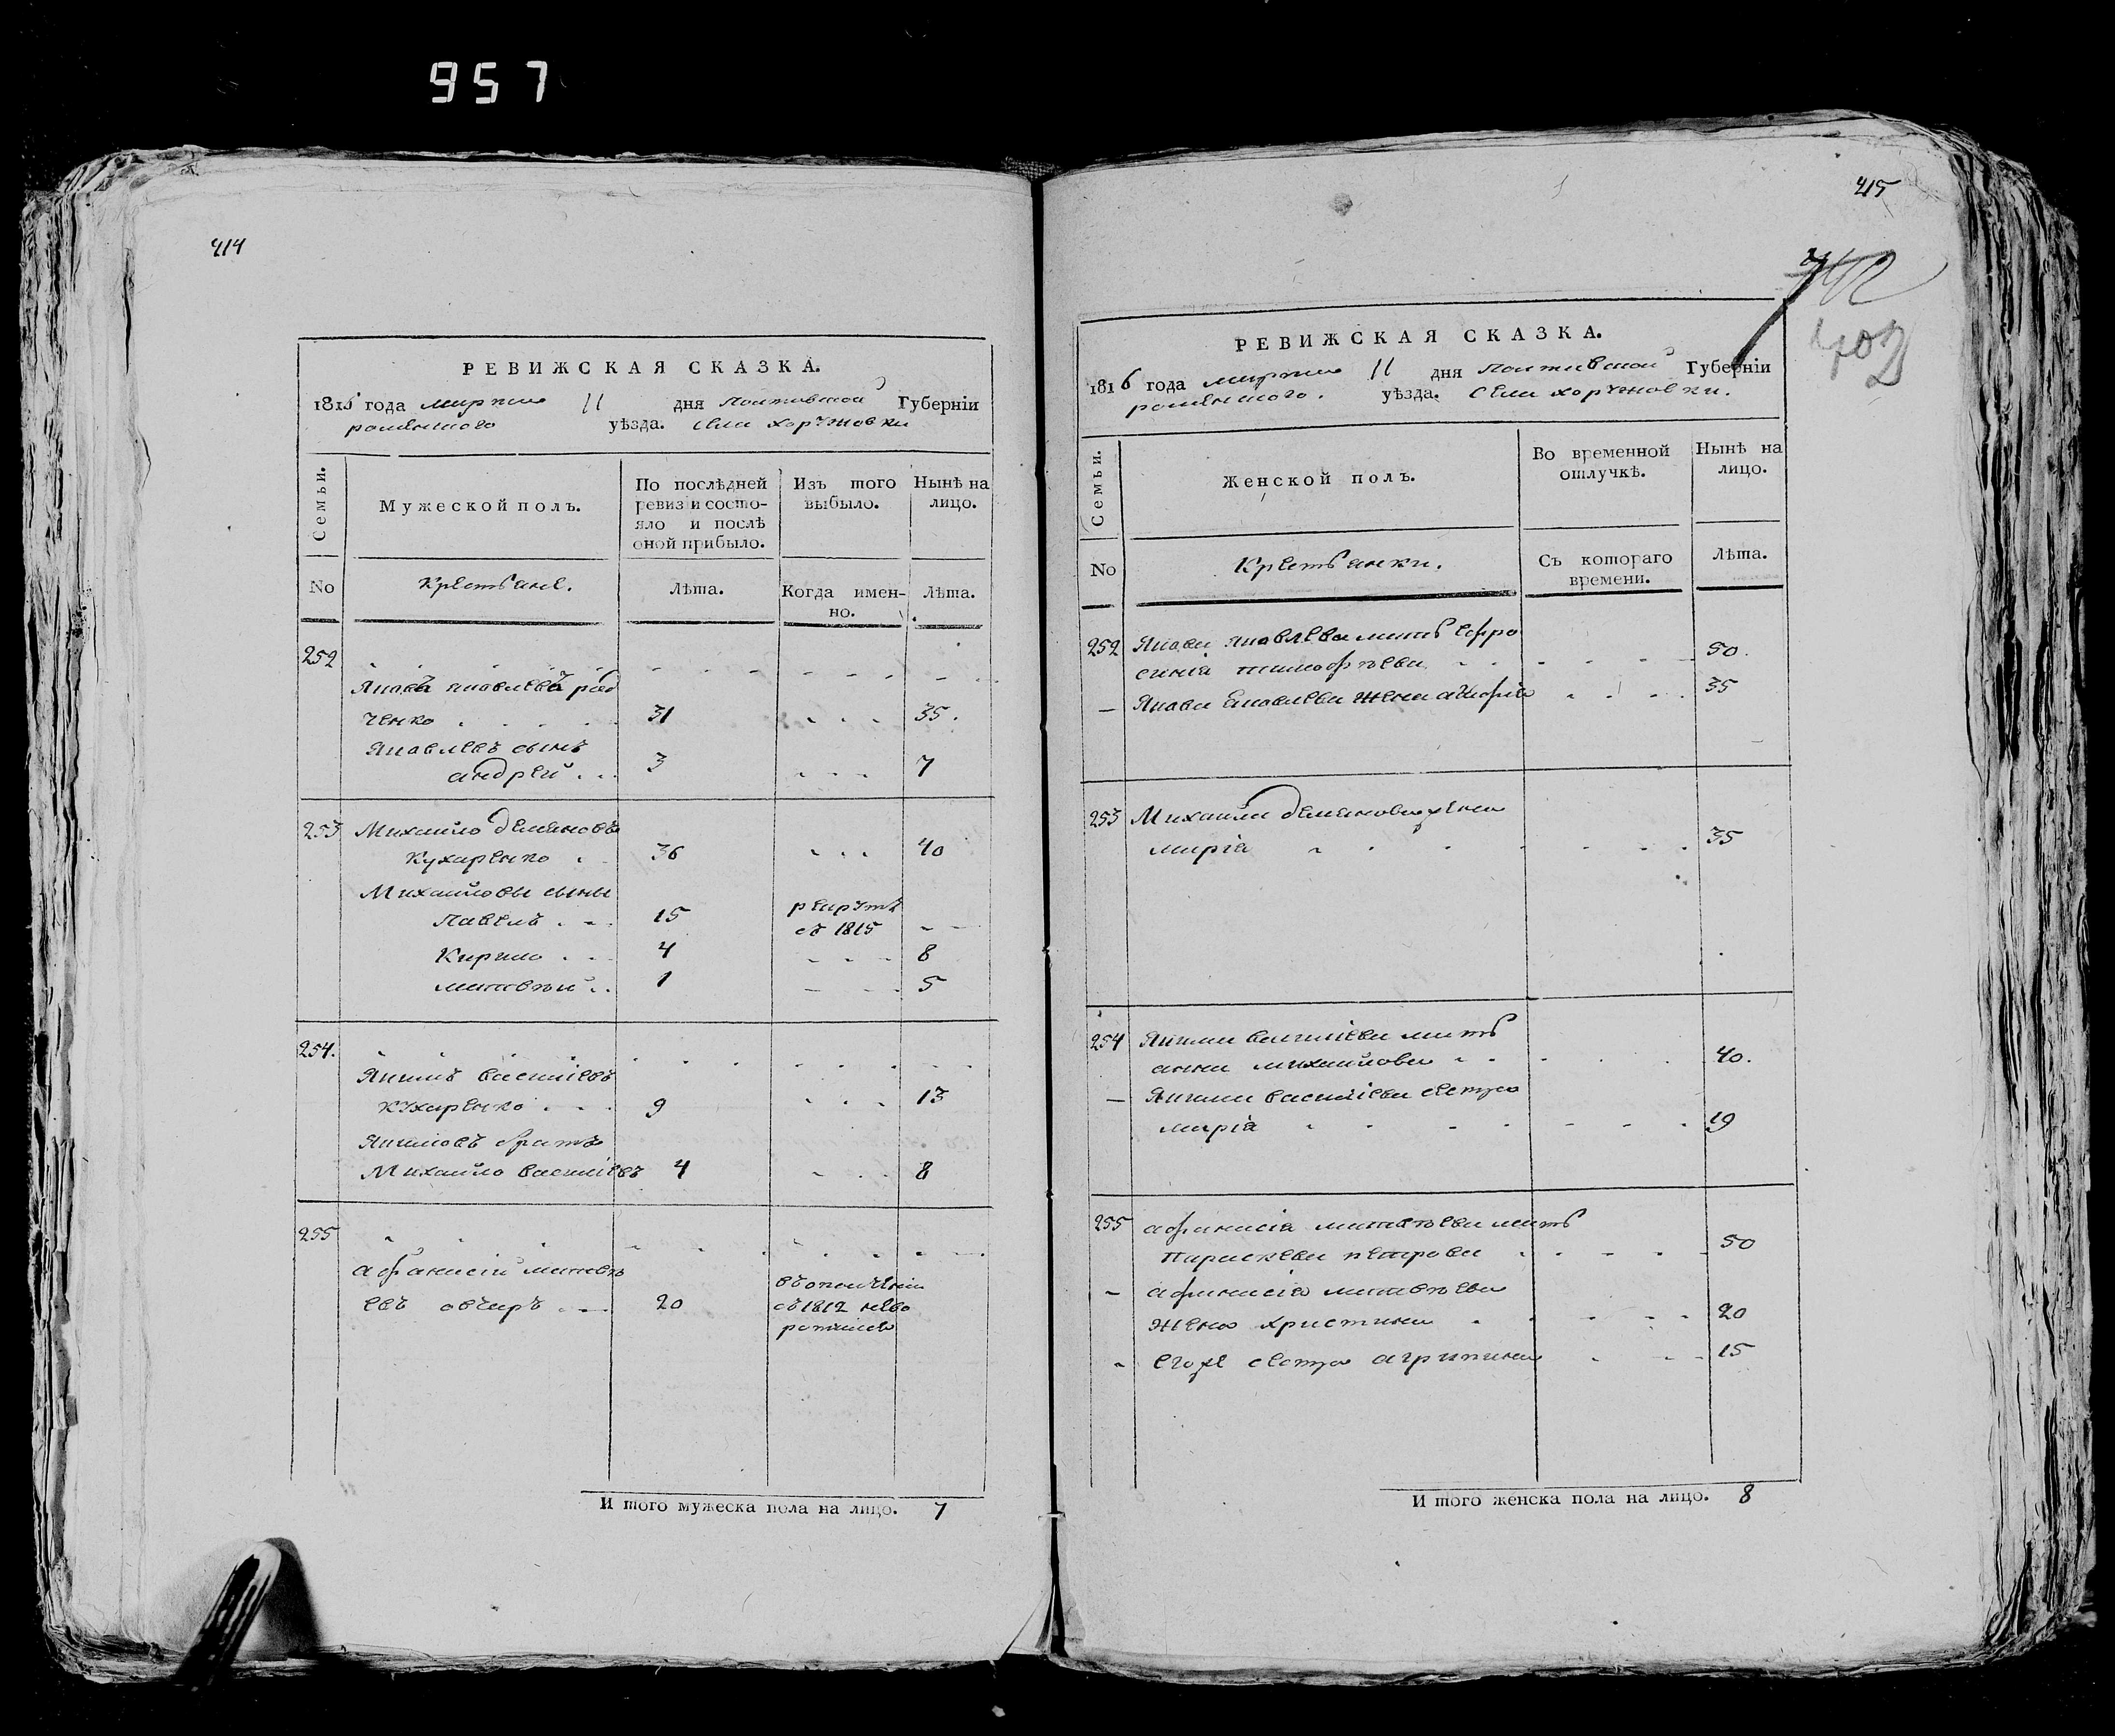 957
414
РЕВИЖСКАЯ СКАЗКА.
1816 года марта 11 дня Полтавской Губерніи
роменского уѣзда. села хоружовки
Семьи.
Мужеской полъ.
По послѣдней ревизіи состояло и послѣ оной прибыло.
Изъ того выбыло.
Нынѣ на лицо.
No
Крестьяне.
Лѣта.
Когда именно.
Лѣта.
252
Яковъ яковлевъ
ченко 31 35.
Яковлевъ сынъ
андрей 3 7
253 Михайло демяновъ
Кухаренко 36 40
Михайловы сыны
Павелъ 15 рекрутъ
съ 1815
Кирило 4 8
матвѣй 1 5
254.
Якимъ василіевъ
кухаренко 9 13
Якимовъ братъ
Михайло василіевъ 4 8
255
афанасій матвѣ
евъ овчаръ 20
въ ополченіи
съ 1812 невоз
ратился
И того мужеска пола на лицо. 7
415
402
РЕВИЖСКАЯ СКАЗКА.
1816 года марта 11 дня Полтавской Губерніи
роменского. уѣзда. села хоружовки.
Семьи.
Женской полъ.
Во временной отлучкѣ.
Нынѣ на лицо.
No
Крестьянки.
Съ котораго времени.
Лѣта.
252 Якова яковлева мать ефро
синія тимофѣева 50.
Якова яковлева жена 35
253 Михайла демянова жена
марія 35
254 Якима василіева мать
анна михайлова 40.
Якима василіева сестра
марія 19
255 афанасія матвѣева мать
Параскева петрова 50
афанасія матвѣева
жена христина 20
егоже сестра агрипина 15
И того женска пола на лицо. 8